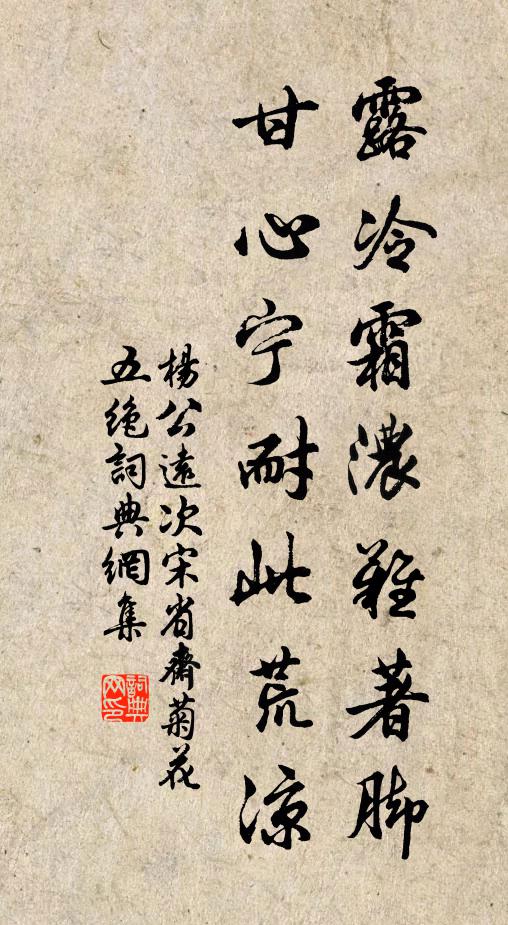 露冷霜濃難著脚
甘心宁耐此荒凉
楊公遠次宋省齋菊花
五絶詞典網集
詞典
网印